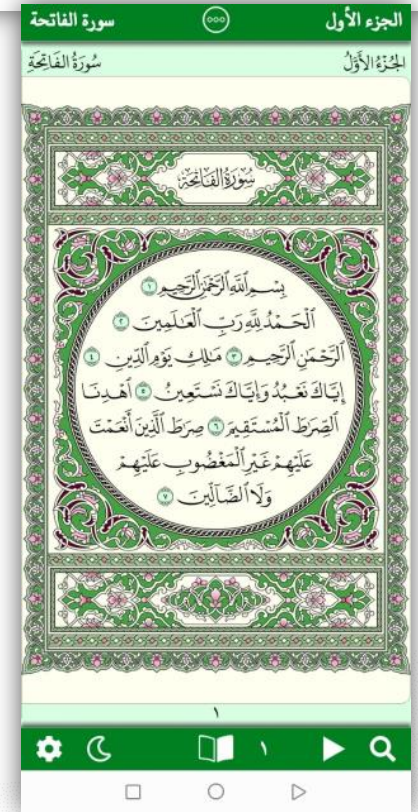 الجزء الأول سورة الفاتحة
الجُزْءُ الأَوَّلُ سُورَةُ الفَاتِحَةِ
سُورَةُ الفَاتِحَةِ
بِسۡمِ ٱللَّهِ ٱلرَّحۡمَٰنِ ٱلرَّحِيمِ ١
ٱلۡحَمۡدُ لِلَّهِ رَبِّ ٱلۡعَٰلَمِينَ ٢
ٱلرَّحۡمَٰنِ ٱلرَّحِيمِ ٣ مَٰلِكِ يَوۡمِ ٱلدِّينِ ٤
إِيَّاكَ نَعۡبُدُ وَإِيَّاكَ نَسۡتَعِينُ ٥ ٱهۡدِنَا
ٱلصِّرَٰطَ ٱلۡمُسۡتَقِيمَ ٦ صِرَٰطَ ٱلَّذِينَ أَنۡعَمۡتَ
عَلَيۡهِمۡ غَيۡرِ ٱلۡمَغۡضُوبِ عَلَيۡهِمۡ
وَلَا ٱلضَّآلِّينَ ٧
١
١